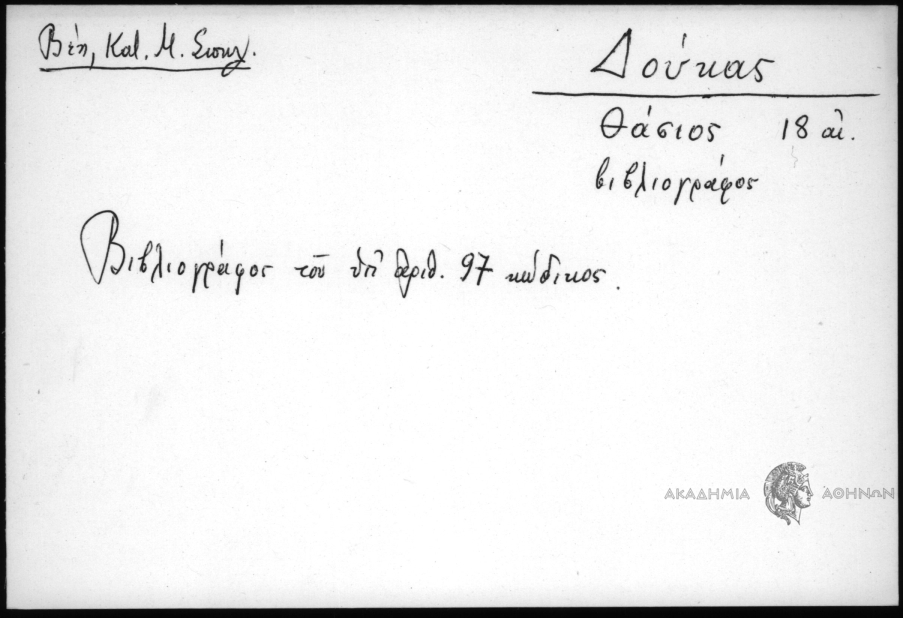 Βέη, Κατ. Μ. Σκηλ.
Δούκας
Θάσιος 18 αἰ.
βιβλιογράφος
Βιβλιογράφος τοῦ ὑπ' ἀριθ. 97 κώδικος.
ΑΚΑΔΗΜΙΑ ΑΘΗΝΩΝ